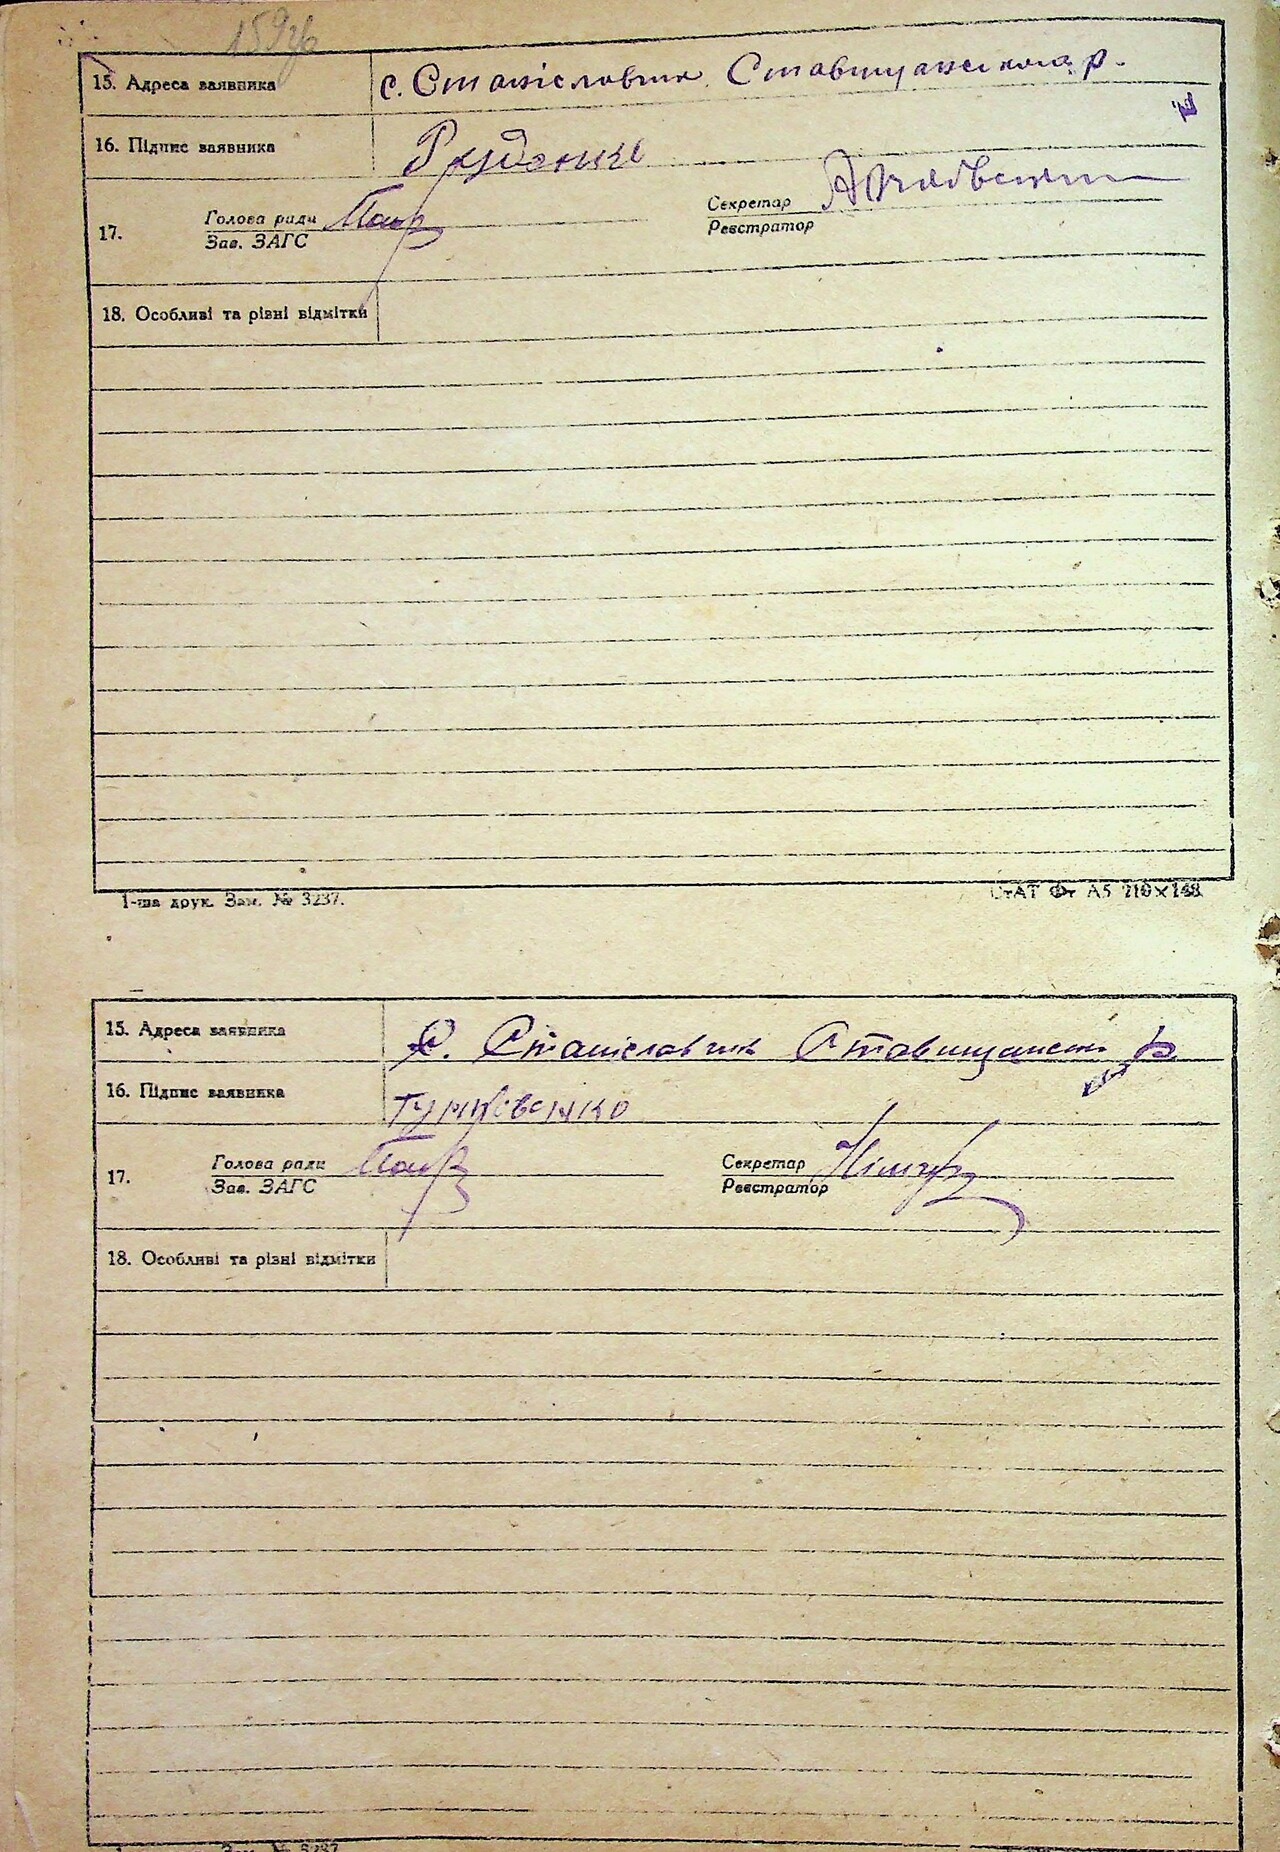 159
15. Адреса заявника с. Станіславчик Ставищанського р.
16. Підпис заявника Руденко
17. Голова ради
Зав. ЗАГС
Секретар
Реєстратор
18. Особливі та різні відмітки
1-ша друк. Зам. № 3237.
СтАТ Фт А5 210×148
15. Адреса заявника С. Станіславчик Ставищанськ р
16. Підпис заявника
17. Голова ради
Зав. ЗАГС
Секретар
Реєстратор
18. Особливі та різні відмітки
Зам. № 3237